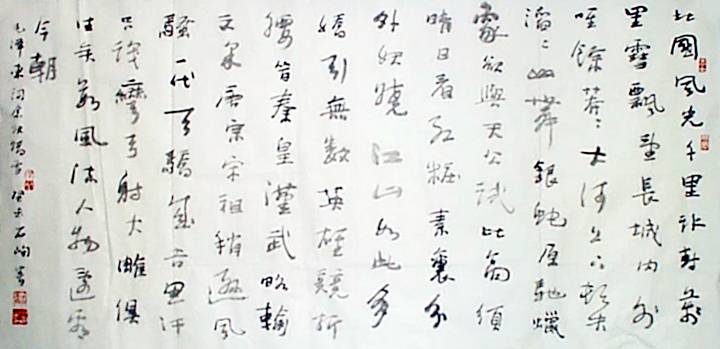 北國風光千里冰封萬
里雪飄望長城內外
唯餘莽〻大河上下頓失
滔〻山舞銀蛇原馳蠟
象欲與天公試比高須
晴日看紅粧素裹分
外妖嬈江山如此多
嬌引無數英雄競折
腰昔秦皇漢武略輸
文采唐宗宋祖稍遜風
騷一代天驕成吉思汗
只識彎弓射大雕俱
往矣數風流人物還看
今朝
毛澤東詞 雪 癸未石 書